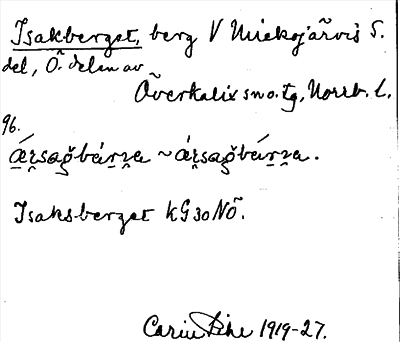 Isakberget, berg V Miekojärvis S.
del, Ö. delen av
Överkalix sn o. tg, Norrb. l.
96.
ber̥ga ~
Isaksberget KG 30 NÖ.
Carin Pihl 1919-27.